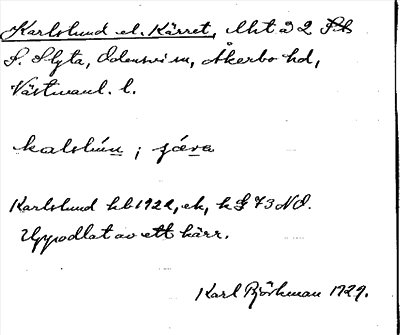 Karlslund el. Kärret, Mht 2 2
S. Slyta, Odensvi sn, Åkerbo hd,
Västmanl. l.
kalslún ; çǽra
Karlslund hb 1922, ek, k § 73 NO.
Uppodlat av ett kärr.
Karl Björkman 1929.